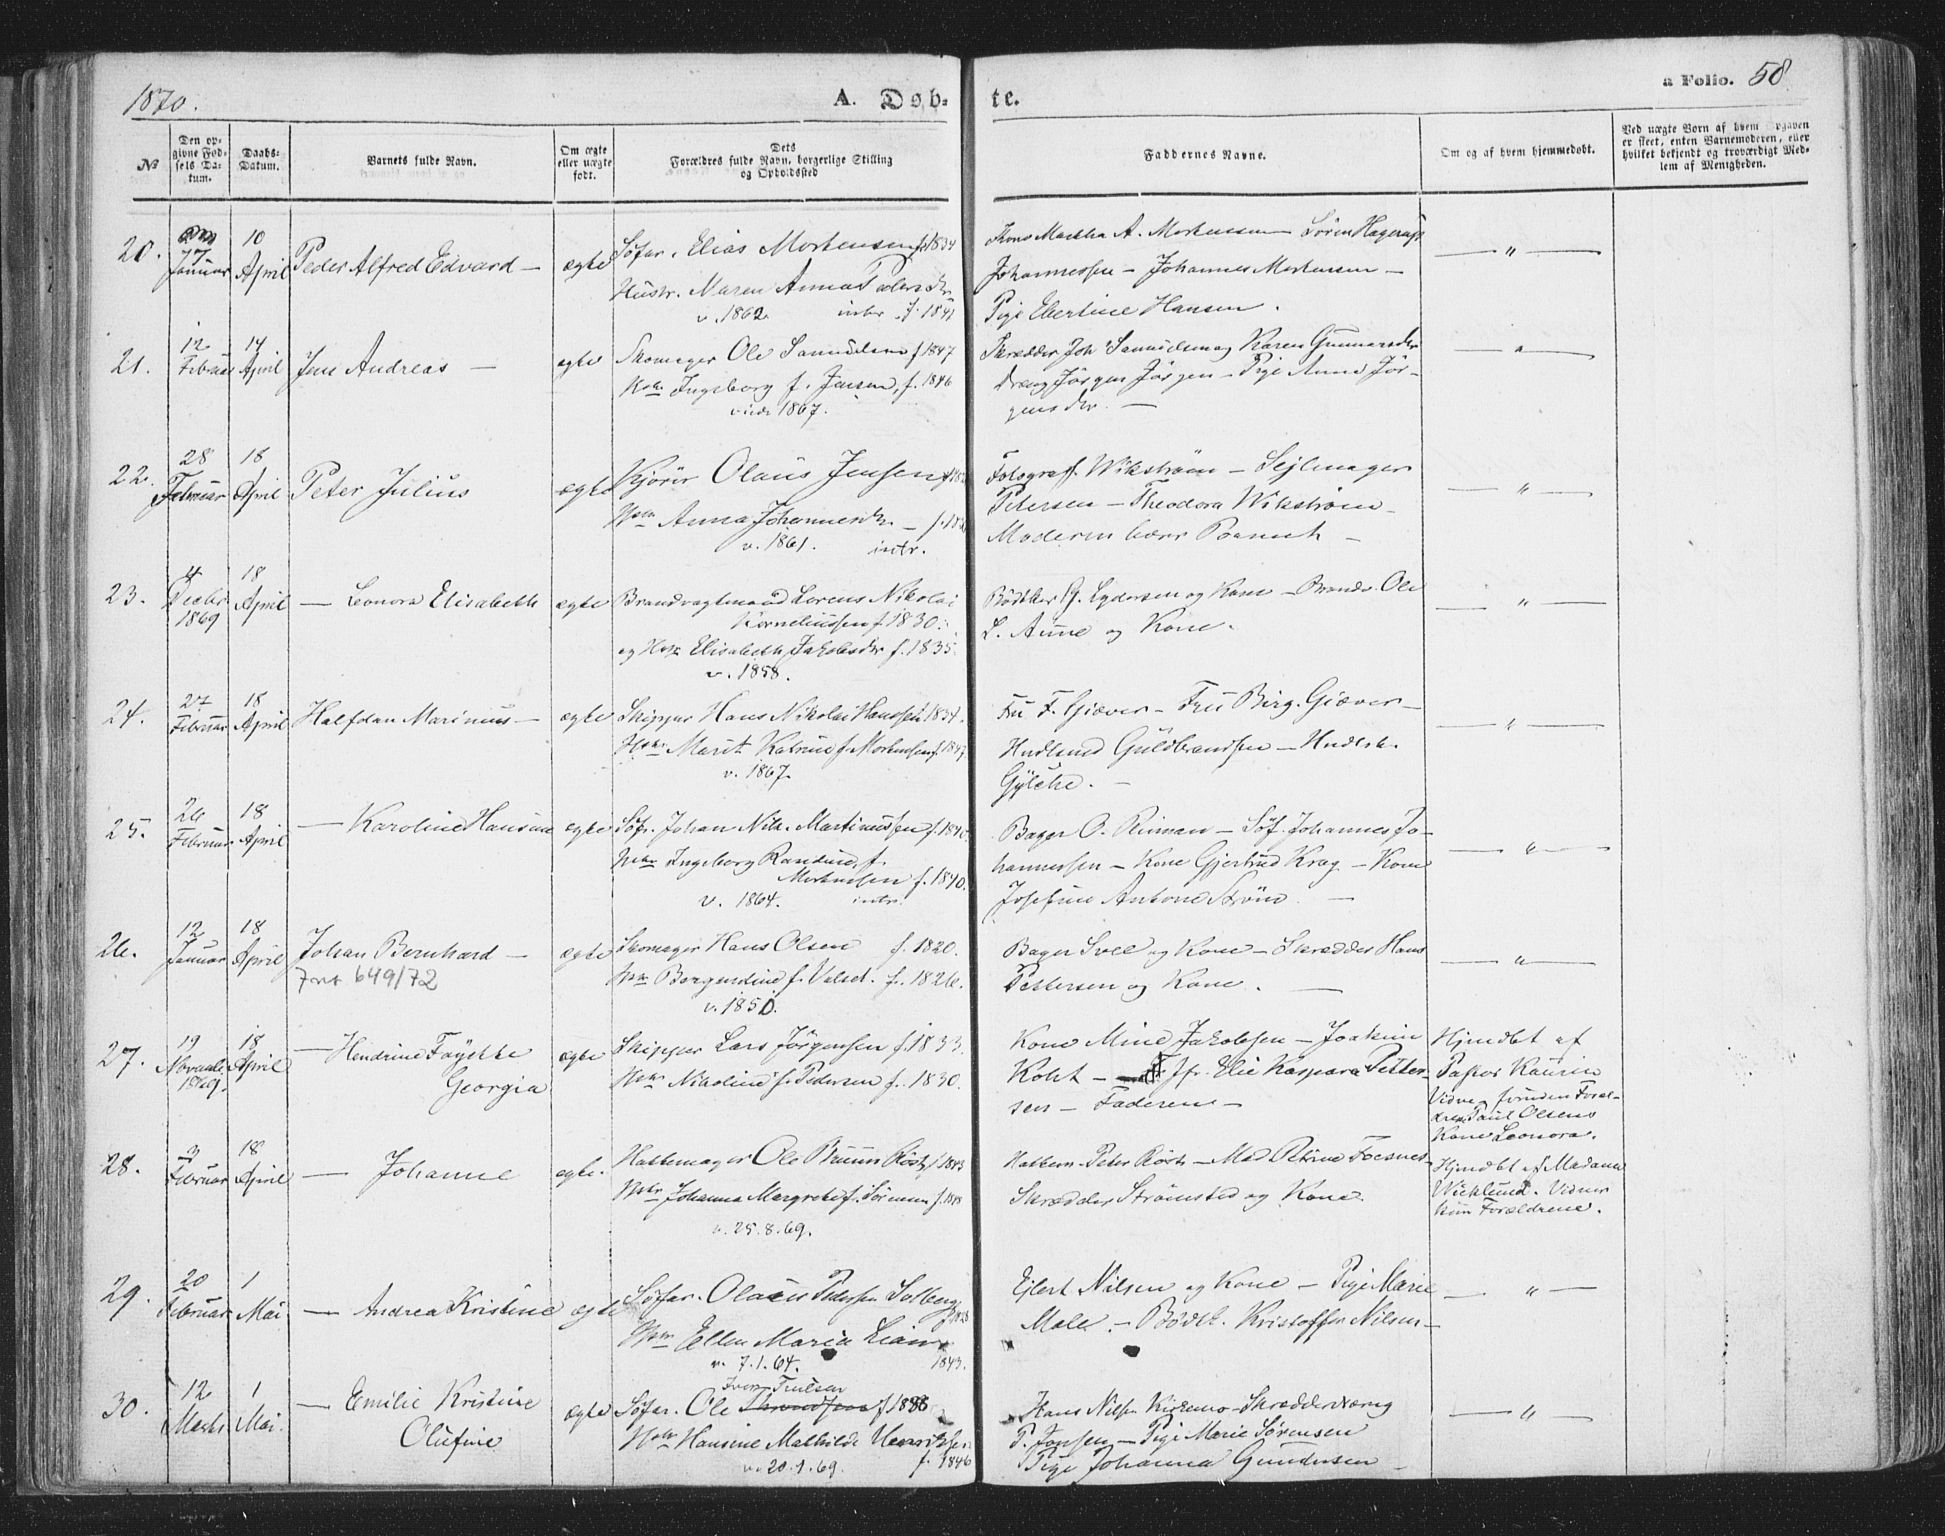 1870.
A. Døb-
te.
a Folio. 58
No
Den op-
givne Fød-
sels Da-
tum.
Daabs-
Datum.
Barnets fulde Navn.
Om ægte
eller uægte
født.
Dets
Forældres fulde Navn, borgerlige Stilling
og Opholdssted
Faddernes Navne.
Om og af hvem hjemmedøbt.
Ved uægte Børn af hvem Opgaven
er skeet, enten Barnemoderen, eller
hvilket bekjendt og troværdigt Med-
lem af Menigheden.
20.
27
Januar
10
April
Peder Alfred Edvard —
ægte
Søfar. Elias Mortensen f. 1834
Hustr. Maren Anna Peders dtr
v. 1862. intr. f. 1841
Kone Martha A. Mortensen — Søren Hagerup
Johannessen — Johannes Mortensen —
Pige Ebertine Hansen.
— " —
21.
12
Februar
14
April
Jens Andreas —
ægte
Skomager Ole Samuelsen f. 1847
Kone Ingeborg f. Jensen, f. 1846
viede 1867.
Skrædder Joh. Samuelsen og Karen Gunnarsdtr
Dreng Jørgen Jørgen — Pige Anne Jør-
gensdtr. —
— " —
22.
28
Februar
18
April
Peter Julius
ægte
Kjører Olaus Jensen
Hstr. Anna Johannesdtr. —
v. 1861. intr.
Fotograf. Wikstrøm — Sejlmager
Petersen — Theodora Wikstrøm —
Moderen bærr Barnet —
— " —
23.
4
Decbr
1869
18
April
— Leonora Elisabeth
ægte
Brandvagtmand Lorens Nikolai
Korneliussen f. 1830.
og Hstr Elisabeth Jakobsdtr f. 1835.
v. 1858.
Bødtker G. Lydersen og Kone — Brandv. Ole
L. Aune og Kone.
— " —
24.
27
Februar
18
April
Halfdan Marinius —
ægte
Skipper Hans Nikolai Hanssen 1834.
Hstr Marit Katrine f. Mortensen f. 1847.
v. 1867.
Fru F. Giæver — Fru Birg. Giæver —
Hndlsmd Guldbrandsen — Hndlsb.
Gylche. —
— " —
25.
26
Februar
18
April
— Karoline Hansine
ægte
Søf. Johan Nik. Martinussen f. 1840.
Hstr Ingeborg Randine, f.
Mortensen f. 1840.
v. 1864. intr.
Bager O. Rieman — Søf. Johannes Jo-
hannessen — Kone Gjertrud Krag — Kone
Josefine Antone Strøm —
— " —
26.
12
Januar
18
April
Johan Bernhard —
649/72
ægte
Skomager Hans Olsen f. 1820.
Hstr Bergendine f. Valset. f. 1826.
v. 1851.
Bager Svee og Kone — Skrædder Hans
Pettersen og Kone. —
— " —
27.
19
Novembr
1869.
18
April
— Hendrine Foÿkke
Georgia
ægte
Skipper Lars Jørgensen f. 1833.
Hstr Nikoline f. Pedersen f. 1830.
Kone Mine Jakobsen — Joakim
Koht — Jfr. Elie Kaspara Petter-
sen — Faderen —
Hjmdbt af
Pastor Kaurin
Vidne foruden Foræl-
drene Paul Olsens
Kone Leonora.
28.
3
Februar
18
April
— Johanne
ægte.
Hattemager Ole Bruun Røst f. 1843
Hstr Johanna Margrethe f. Sørensen f. 1848
v. 25.8.69.
Hattem. Peter Røst — Mad. Petrine Foesnes
Skrædder Strømsted og Kone.
Hjmdbt af Madame
Wicklund. Vidner
kun Forældrene.
29.
20
Februar
1
Mai.
— Andrea Kristine
ægte
Søfar. Olaus Pedersen Solberg
Hstr Ellen Maria
v. 7.1.64. 1843.
Ejlert Nilsen og Kone — Pige Marie
Male. — Bødk. Kristoffer Nilsen —
— " —
30.
12
Marts
1
Mai.
— Emilie Kristine
Olufine
ægte
Iver Trulsen
Søfar. Ole
Hstr Hansine Mathilde Henriksen
v. 20.1.69. f. 1846
Hans Nilsen Kirkemo — Skrædderdreng
P. Jonsen — Pige Marie Sørensen
Pige Johanna Gundersen —
— " —